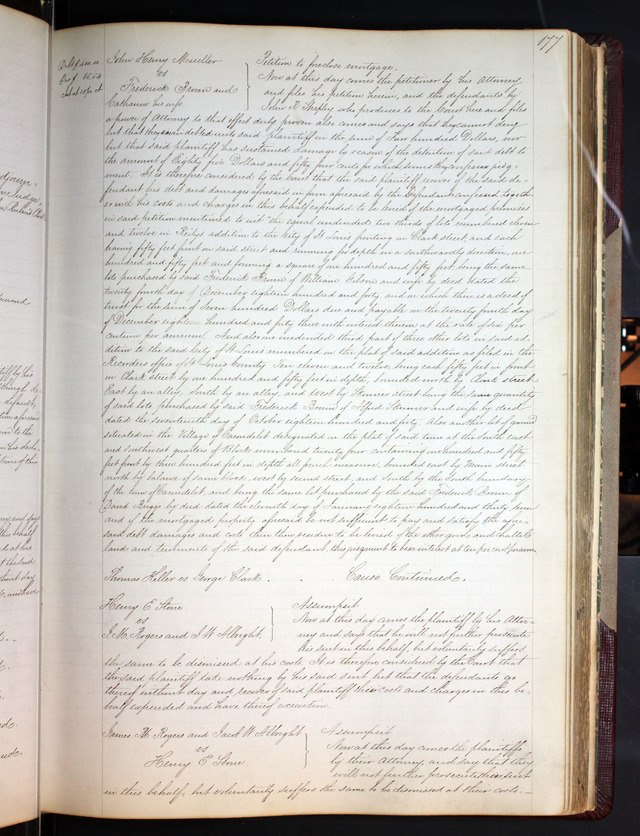 177
John Henry Mueller
vs
Frederick Brown and
Catharine his wife
Petition to foreclose mortgage.
Now at this day comes the petitioner by his Attorney
and files his petition herein, and the defendants by
John R Shepley who produces to the Court here and files
a power of Attorney to that effect duly proven also comes and says that they cannot deny
but that they are indebted unto said plaintiff in the sum of Four hundred Dollars, nor
but that said plaintiff has sustained damage by reason of the detention of said debt to
the amount of Eighty five Dollars and fifty four cents for which sum they confess judg-
ment. It is therefore considered by the Court that the said plaintiff recover of the said de-
fendant his debt and damages aforesaid in form aforesaid by the defendant confessed togeth-
er with his costs and charges in this behalf expended to be levied of the mortgaged premises
in said petition mentioned to wit the equal undivided two thirds of lots numbered eleven
and twelve in Risleys addition to the City of St Louis fronting on Clark street and each
having fifty feet front on said street and running for depth in a southwardly direction, one
hundred and fifty feet and forming a square of one hundred and fifty feet, being the same
lots purchased by said Frederick Brown of William and wife by deed dated the
twenty fourth day of December eighteen hundred and forty, and on which there is a deed of
trust for the sum of Seven hundred Dollars due and payable on the twenty fourth day
of December eighteen hundred and forty three with interest thereon at the rate of six per
centum per annum. And also one undivided third part of three other lots in said ad-
dition to the said City of St Louis numbered on the plat of said addition as filed in the
Recorders office of St Louis County Ten eleven and twelve, being each fifty feet in front
on Clark street by one hundred and fifty feet in depth, bounded north by Clark street
East by an alley, South by an alley, and West by street being the same quantity
of said lots purchased by said Frederick Brown of Alfred Skinner and wife by deed
dated the seventeenth day of October eighteen hundred and forty. Also another lot of ground
situated in the Village of Carondelet designated on the plat of said town as the South east
and southwest quarters of Block numbered twenty four containing one hundred and fifty
feet front by three hundred feet in depth all french measure, bounded east by Main street
north by balance of same block, west by second street, and South by the South boundary
of the town of Carondelet and being the same lot purchased by the said Frederick Brown of
David Briggs by deed dated the eleventh day of January eighteen hundred and thirty seven
and if the mortgaged property aforesaid be not sufficient to pay and satisfy the afore-
said debt damages and costs then the residue to be levied of the other goods and chattels
lands and tenements of the said defendant this judgment to bear interest at ten per cent per annum.
Thomas Hiller vs George Clark. . . Cause Continued.
Henry E Stone
vs
J. M. Rogers and J. W. Albright.
Assumpsit
Now at this day comes the plaintiff by his Attor-
ney and says that he will not further prosecute
his suit in this behalf, but voluntarily suffers
the same to be dismissed at his costs. It is therefore considered by the Court that
the said plaintiff take nothing by his said suit but that the defendants go
thereof without day and recover of said plaintiff their costs and charges in this be-
half expended and have thereof execution.
James M. Rogers and Jacob W Albright
vs
Henry E Stone
Assumpsit
Now at this day comes the plaintiffs
by their Attorney and say that they
will not further prosecute their suit
in this behalf, but voluntarily suffers the same to be dismissed at their costs.